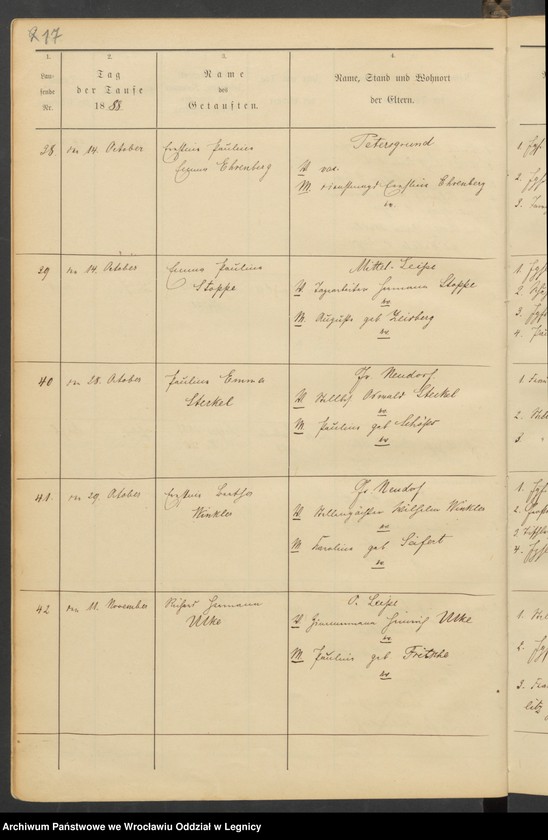 217
1.
Lau-
fende
Nr.
2.
Tag
der Taufe
1888
3.
Name
des
Getauften.
4.
Name, Stand und Wohnort
der Eltern.
38 den 14. October Ernstine Pauline
Emma Ehrenberg
Petersgrund
V.
M. Dienstmagd Ernstine Ehrenberg
39 den 14. October Emma Pauline
Stoppe
Mittel-Leipe
V. Hermann Stoppe
M. Auguste geb Zeisberg
40 den 28. October Pauline Emma
Sterkel
Gr. Neudorf
V. Stellbes Oswald Sterkel
M. Pauline geb Schäfer
41. den 29. October Ernstine Bertha
Winkler
Gr. Neudorf
V. Stellenpächter Wilhelm Winkler
M. Karoline geb Seifert
42 den 11. November Richard Hermann
Ulke
O. Leipe
V. Zimmermann Heinrich Ulke
M. Pauline geb Fritsche
Archiwum Państwowe we Wrocławiu Oddział w Legnicy